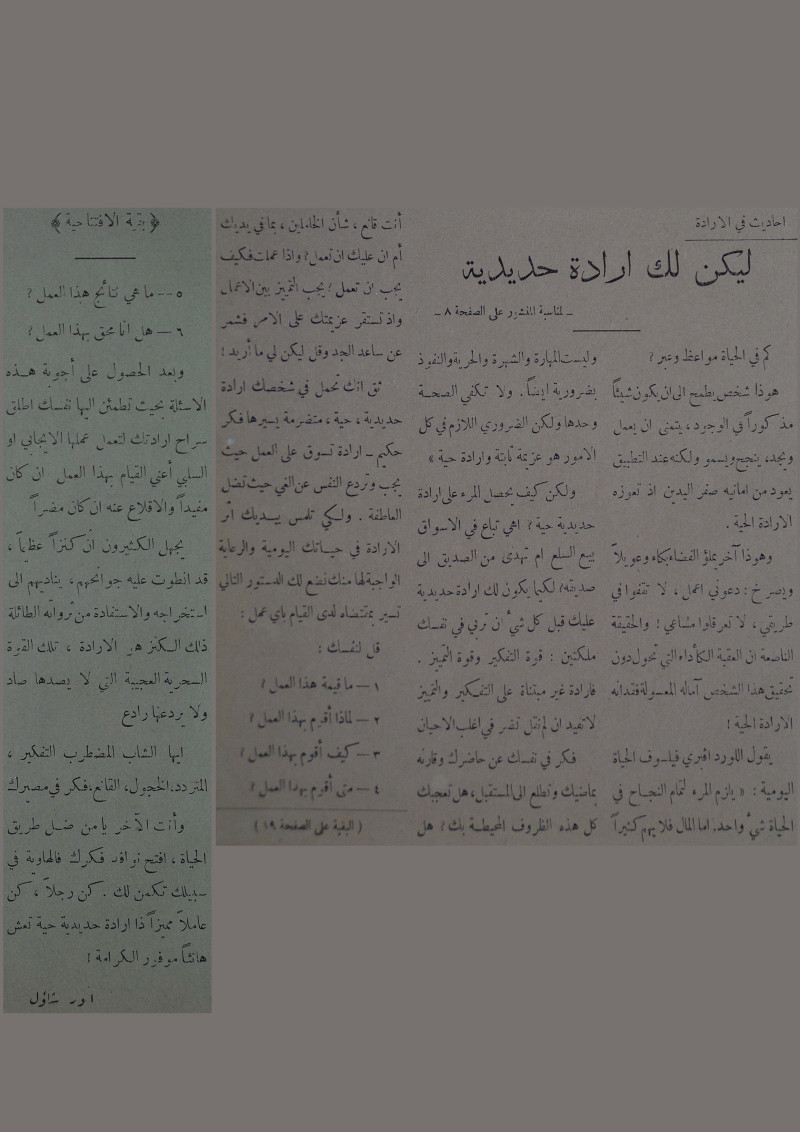 احاديث في الارادة
ليكن لك ارادة حديدية
ــ لمناسبة المنشور على الصفحة ٨ ــ
كم في الحياة مواعظ وعبر ؟
هوذا شخص يطمح الى ان يكون شيئاً
مذكوراً في الوجود ، يتمنى ان يعمل
ويجد، ينجح ويسمو ولكنه عند التطبيق
يعود من امانيه صفر اليدين اذ تعوزه
الارادة الحية .
وهوذا آخر يملؤ الفضاء بكاء وعويلاً
ويصرخ : دعوني اعمل ، لا تقفوا في
طريقي ، لا تعرقلوا مشاعي ! والحقيقة
الناصعة ان العقبة الكأداء التي تحول دون
تحقيق هذا الشخص آماله المعسولة فقدانه
الارادة الحية !
يقول اللورد افبري فيلسوف الحياة
اليومية : « يلزم المرء لتمام النجاح في
الحياة شيء واحد. اما المال فلا يهم كثيراً
وليست المهارة والشهرة والحرية والنفوذ
بضرورية ايضاً . ولا تكفي الصحة
وحدها ولكن الضروري اللازم في كل
الامور هو عزيمة ثابتة وارادة حية »
ولكن كيف يحصل المرء على ارادة
حديدية حية ؟ اهي تباع في الاسواق
بيع السلع ام تهدى من الصديق الى
صديقه؟ لكيما يكون لك ارادة حديدية
عليك قبل كل شيء ان تربي في نفسك
ملكتين : قوة التفكير وقوة التمييز .
فارادة غير مبتناة على التفكير والتمييز
لا تفيد ان لم نقل تضر في اغلب الاحيان
فكر في نفسك عن حاضرك وقارنه
بماضيك وتطلع الى المستقبل، هل تعجبك
كل هذه الظروف المحيطة بك ؟ هل
أنت قانع ، شأن الخاملين ، بما في يديك
أم ان عليك ان تعمل ؟ واذا عملت فكيف
يجب ان تعمل ؟ يجب التمييز بين الاعمال
واذ تستقر عزيمتك على الامر فشمر
عن ساعد الجد وقل ليكن لي ما أريد !
ثق انك تحمل في شخصك ارادة
حديدية ، حية ، متضرمة يسيرها فكر
حكيم ــ ارادة تسوق على العمل حيث
يجب وتردع النفس عن الغي حيث تضل
العاطفة . ولكي تلمس بيديك اثر
الارادة في حياتك اليومية والرعاية
الواجبة لها منك نضع لك الدستور التالي
تسير بمقتضاه لدى القيام باي عمل :
قل لنفسك :
١ — ما قيمة هذا العمل ؟
٢ — لماذا أقوم بهذا العمل ؟
٣ — كيف أقوم بهذا العمل ؟
٤ — متى أقوم بهذا العمل ؟
( البقية على الصفحة ١٩ )
﴿ بقية الافتتاحية ﴾
٥ — ما هي نتائج هذا العمل ؟
٦ — هل انا محق بهذا العمل ؟
وبعد الحصول على أجوبة هذه
الاسئلة بحيث تطمئن اليها نفسك اطلق
سراح ارادتك لتعمل عملها الايجابي او
السلبي أعني القيام بهذا العمل ان كان
مفيداً والاقلاع عنه ان كان مضراً
يجهل الكثيرون ان كنزاً عظيماً ،
قد انطوت عليه جوانحهم ، يناديهم الى
استخراجه والاستفادة من ثرواته الطائلة
ذلك الكنز هو الارادة ، تلك القوة
السحرية العجيبة التي لا يصدها صاد
ولا يردعها رادع
ايها الشاب المضطرب التفكير ،
المتردد. الخجول، القانع، فكر في مصيرك
وأنت الآخر يا من ضل طريق
الحياة ، افتح نوافذ فكرك فالهاوية في
سبيلك تكمن لك . كن رجلاً ، كن
عاملاً مميزاً ذا ارادة حديدية حية تعش
هانئاً موفور الكرامة !
انور شاؤل